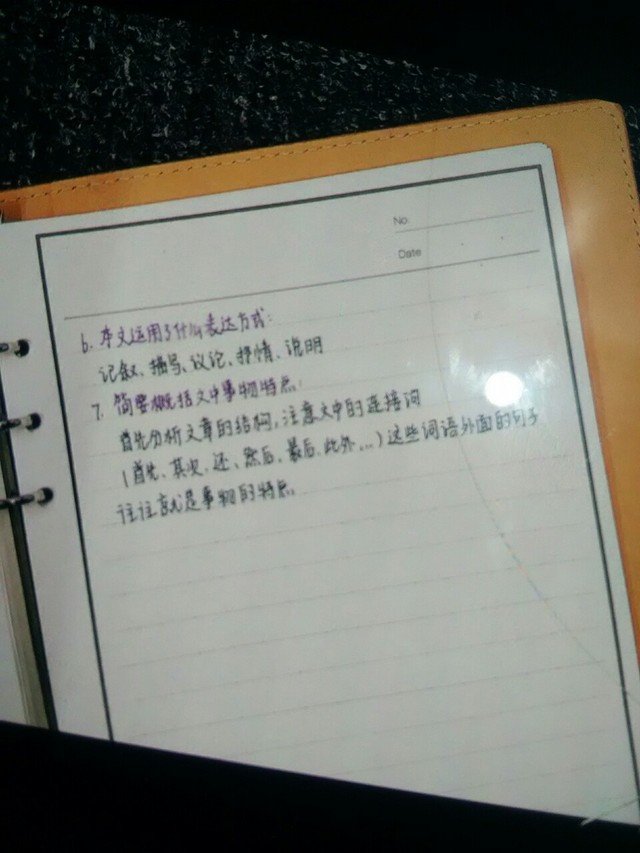 No.
Date
6. 本文运用了什么表达方式:
记叙、描写、议论、抒情、说明
7. 简要概括文中事物特点:
首先分析文章的结构,注意文中的连接词
(首先、其次、还、然后、最后、此外、...)这些词语外面的句子
往往就是事物的特点